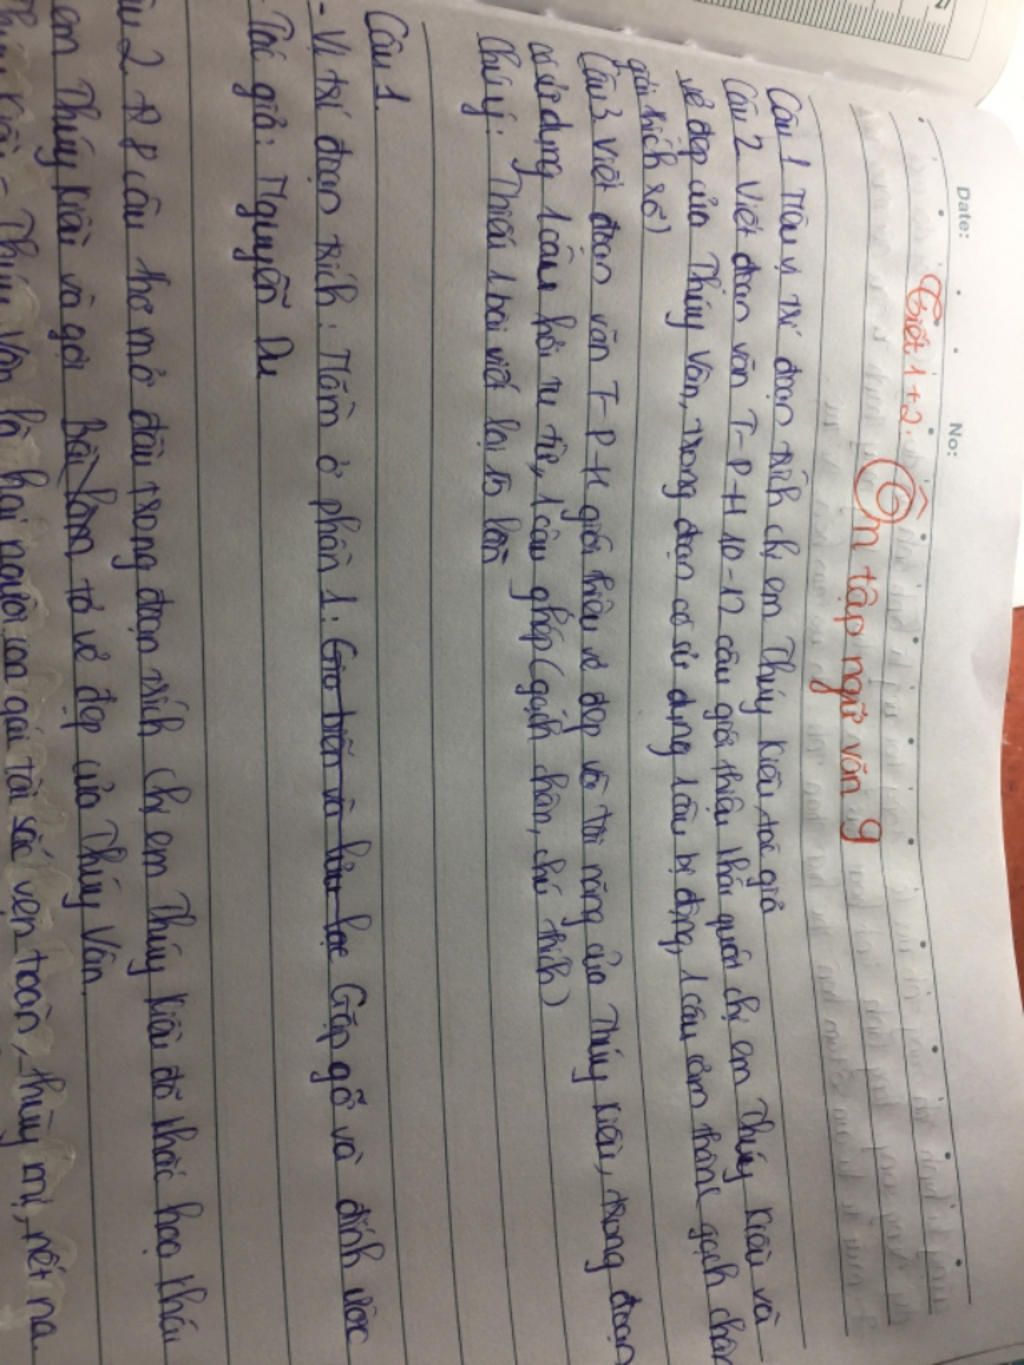 Date: No:
Tiết 1+2: Ôn tập ngữ văn 9
Câu 1 Nêu vị trí đoạn trích chị em Thúy Kiều, tác giả
Câu 2 Viết đoạn văn T-P-H 10-12 câu giới thiệu khái quát chị em Thúy Kiều và
vẻ đẹp của Thúy Vân, trong đoạn có sử dụng 1 câu bị động, 1 câu cảm thán( gạch chân
giải thích rõ)
Câu 3 Viết đoạn văn T-P-H giới thiệu vẻ đẹp và tài năng của Thúy Kiều, trong đoạn
có sử dụng 1 câu hỏi tu từ, 1 câu ghép (gạch chân, chú thích)
Chú ý: Thiếu 1 bài viết lại 15 lần
Câu 1
- Vị trí đoạn trích: Nằm ở phần 1: Gia biến và lưu lạc Gặp gỡ và đính ước
Tác giả: Nguyễn Du
câu 2 8 câu thơ mở đầu trong đoạn trích chị em Thúy Kiều đã khắc họa khái
em Thúy Kiều và gợi tả vẻ đẹp của Thúy Vân.
Thúy Kiều - Thúy Vân là hai người con gái tài sắc vẹn toàn, thùy mị, nết na.